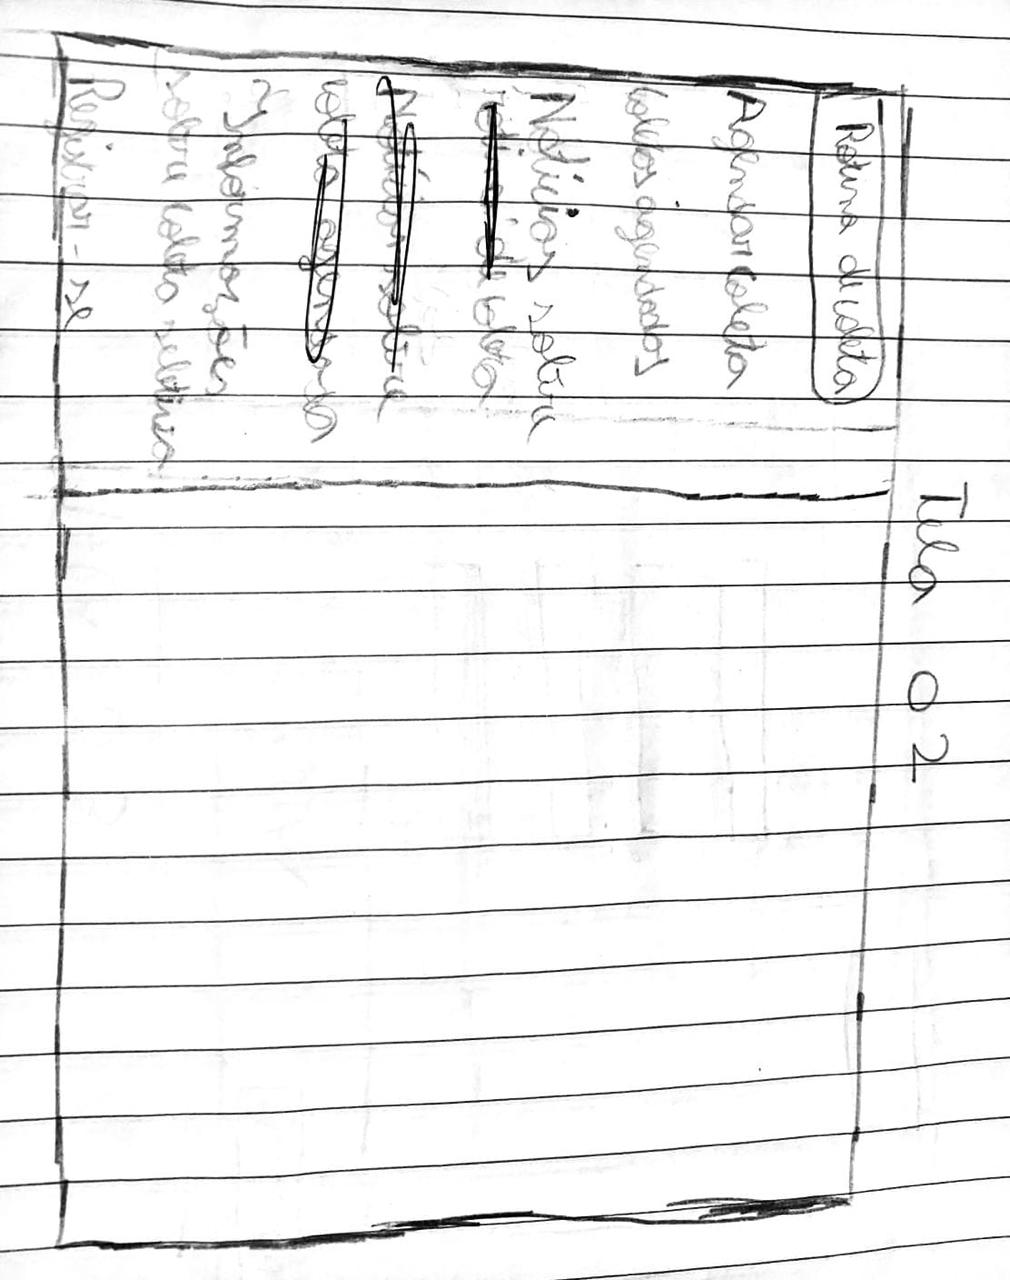 Tela 02
Rotina de coleta
Agendar coleta
Coletas agendadas
Notícias sobre
de coleta
Notícias sobre
coleta agendada
Informações
sobre coleta seletiva
Registrar-se